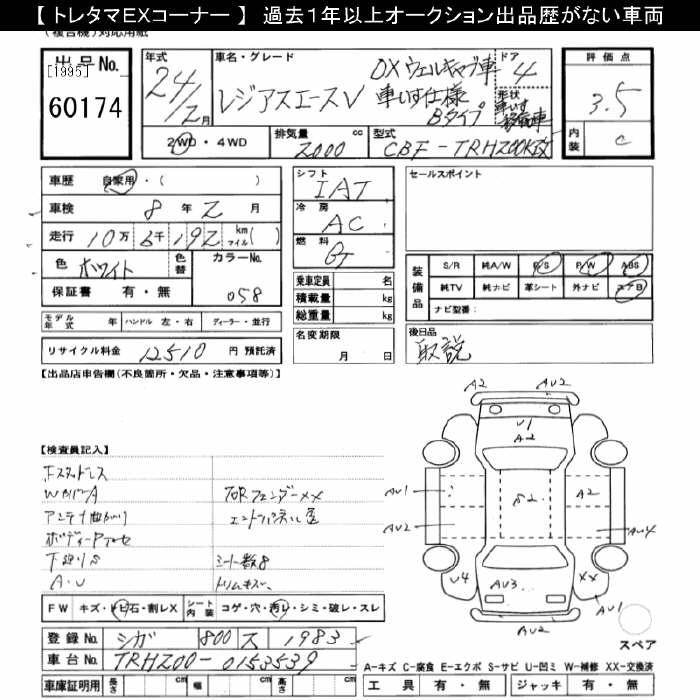 【 トレタマEXコーナー 】 過去１年以上オークション出品歴がない車両
出品No. [1995] 60174
年式 24/2月
車名・グレード レジアスエースV DXウェルキャブ車 車いす仕様 Bタイプ
ドア 4 形状 車いす移動車
評価点 3.5
内装 C
2WD・4WD 排気量 2000 cc 型式 CBF-TRH200K改
車歴 自家用・( )
車検 8 年 2 月
走行 10万 6千 192 km マイル( )
色 ホワイト 色替 カラーNo. 058
保証書 有・無
モデル年式 年 ハンドル 左・右 ディーラー・並行
リサイクル料金 12510 円 預託済
シフト IAT
冷房 AC
燃料 G
乗車定員 名
積載量 kg
総重量 kg
名変期限 月 日
セールスポイント
装備品 S/R 純A/W P/S P/W ABS
純TV 純ナビ 革シート 外ナビ エアB
ナビ型番:
後日品 取説
【出品店申告欄(不良箇所・欠品・注意事項等)】
【検査員記入】
WカバーA
アンテナ曲がり
下廻りS
A・U
シート数8
トリムキズ
FW キズ・トビ石・割レX シート内装 コゲ・穴・汚レ・シミ・破レ・スレ
登録No. シガ 800 ス 1983
車台No. TRH200-0153539
車庫証明用 長さ cm 幅 cm 高さ cm
A2 AU2
U1
A2
AU1 S2 A2
AU2 AU4
U4 AU3 XX
AU1
AU2
スペア
A-キズ C-腐食 E-エクボ S-サビ U-凹ミ W-補修 XX-交換済
工具 有・無 ジャッキ 有・無